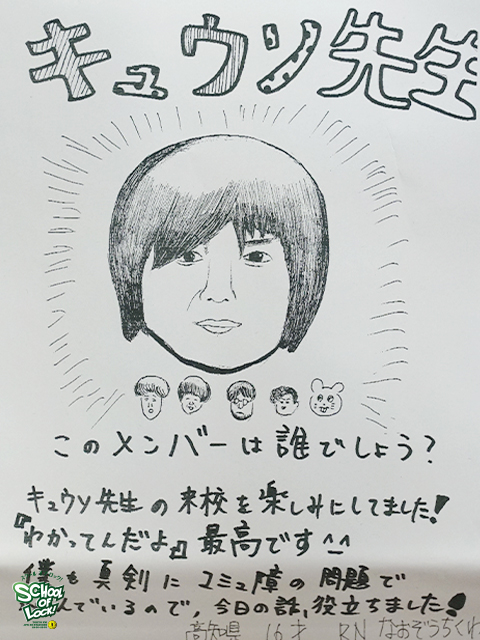 キュウソ先生
このメンバーは誰でしょう?
キュウソ先生の来校を楽しみにしてました!
『わかってんだよ』最高です^^
僕も真剣にコミュ障の問題で
んでいるので,今日の話,役立ちました!
高知県 16才 RN なおぞうちくわ
SCHOOL OF LOCK!